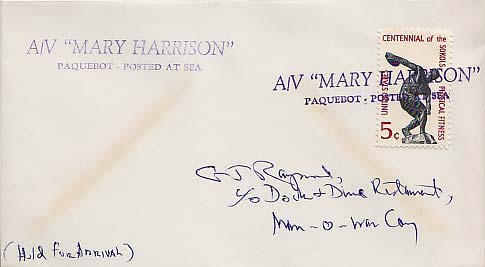 A/V "MARY HARRISON"
PAQUEBOT - POSTED AT SEA
A/V "MARY HARRISON"
PAQUEBOT - POSTED AT SEA
CENTENNIAL of the
SOKOLS PHYSICAL FITNESS
UNITED STATES
5c
Raymond,
c/o Dock & Dine Restaurant,
Man-o-War Cay
(Hold For Arrival)